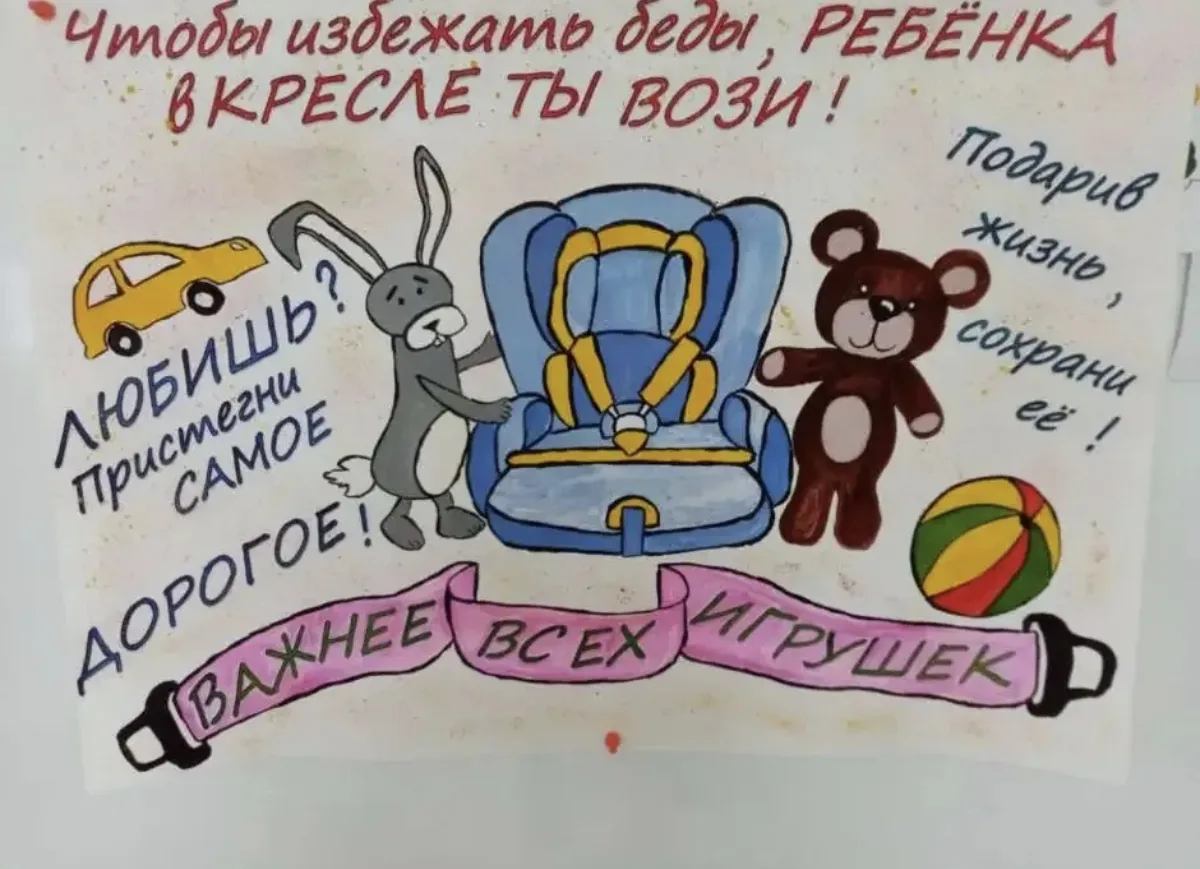 Чтобы избежать беды, РЕБЁНКА
в КРЕСЛЕ ТЫ ВОЗИ!
ЛЮБИШЬ?
Пристегни
САМОЕ
ДОРОГОЕ!
Подарив
жизнь,
сохрани
её!
ВАЖНЕЕ ВСЕХ ИГРУШЕК